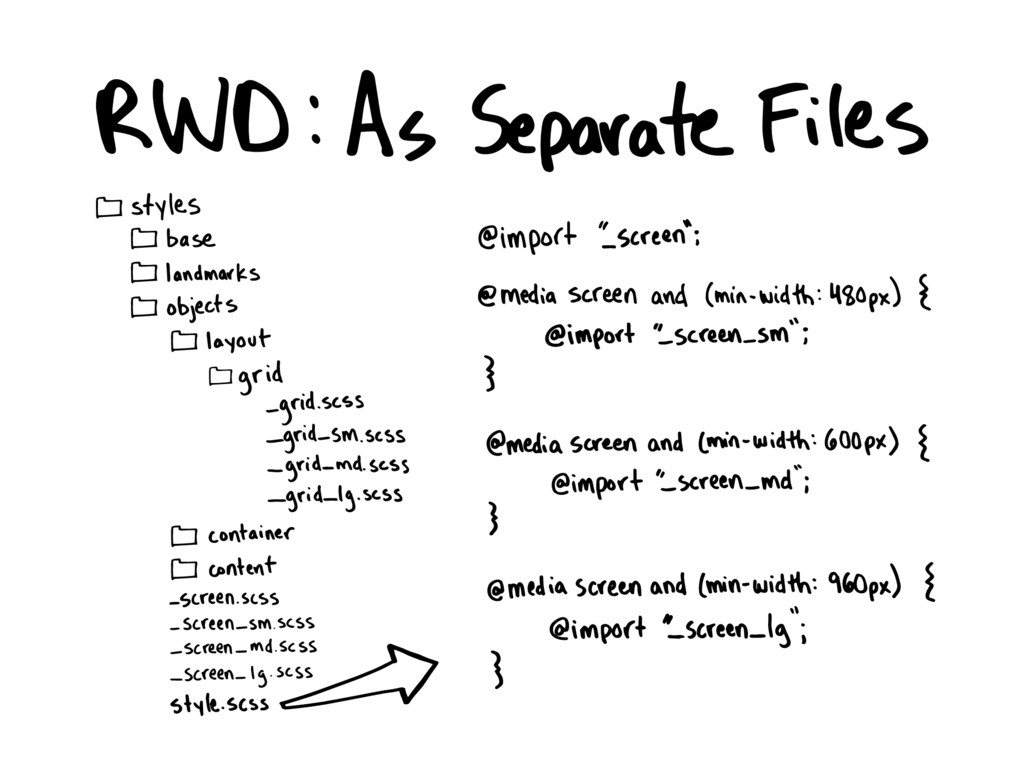 RWD: As Separate Files
styles
base
landmarks
objects
layout
grid
_grid.scss
_grid_sm.scss
_grid_md.scss
_grid_lg.scss
container
content
_screen.scss
_screen_sm.scss
_screen_md.scss
_screen_lg.scss
style.scss
@import "_screen";
@media screen and (min-width: 480px) {
@import "_screen_sm";
}
@media screen and (min-width: 600px) {
@import "_screen_md";
}
@media screen and (min-width: 960px) {
@import "_screen_lg";
}